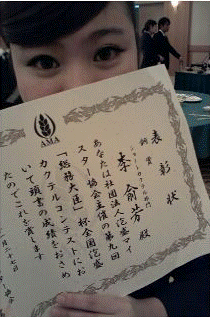 AMA
表彰状
銅賞
李俞芳 殿
あなたは社団法人泡盛マイ
スター協会主催の第九回
「総務大臣」杯全国泡盛
カクテルコンテストにお
いて頭書の成績をおさめ
たのでこれを賞します